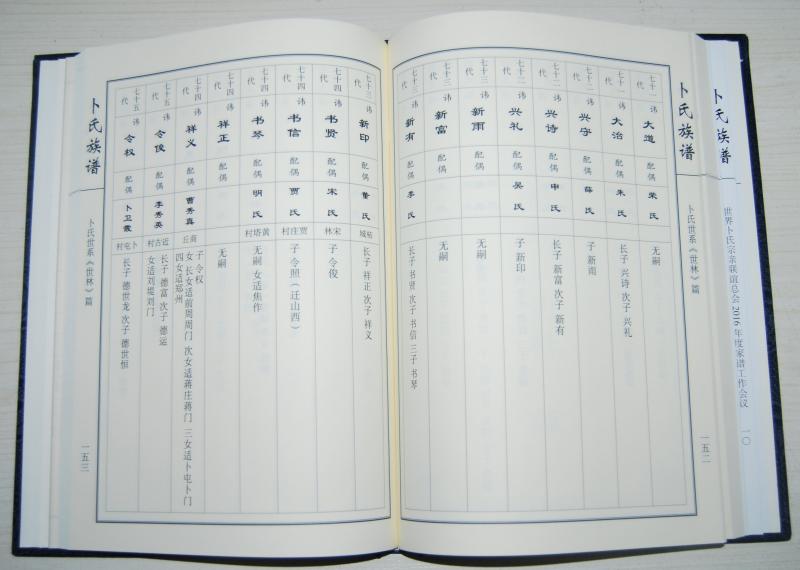 卜氏族普
世界卜氏宗亲联谊总会2016年度家谱工作会议
一〇
卜氏族谱
卜氏世系《世林》篇
一五二
七十一代 讳 大道 配偶 荣氏 无嗣
七十一代 讳 大治 配偶 朱氏 长子 兴诗 次子 兴礼
七十二代 讳 兴守 配偶 薛氏 子 新南
七十二代 讳 兴诗 配偶 申氏 长子 新富 次子 新有
七十二代 讳 兴礼 配偶 吴氏 子 新印
七十三代 讳 新雨 配偶 无嗣
七十三代 讳 新富 配偶 无嗣
七十三代 讳 新有 配偶 李氏 长子 书贤 次子 书信 三子 书琴
七十三代 讳 新印 配偶 氏 柘城 长子 祥正 次子 祥义
七十四代 讳 书贤 配偶 宋氏 宋林 子 令俊
七十四代 讳 书信 配偶 贾氏 贾庄村 子 令照（迁山西）
七十四代 讳 书琴 配偶 明氏 黄塔村 无嗣 女适焦作
七十四代 讳 祥正 配偶 无嗣
七十四代 讳 祥义 配偶 曹秀真 商丘 子 令权
女 长女适前周周门 次女适蒋庄蒋门 三女适卜屯卜门
四女适郑州
七十五代 讳 令俊 配偶 李秀英 近古村 长子 德富 次子 德运
女适刘堤刘门
七十五代 讳 令权 配偶 卜卫霞 卜屯村 长子 德世龙 次子 德世恒
卜氏族谱
卜氏世系《世林》篇
一五三